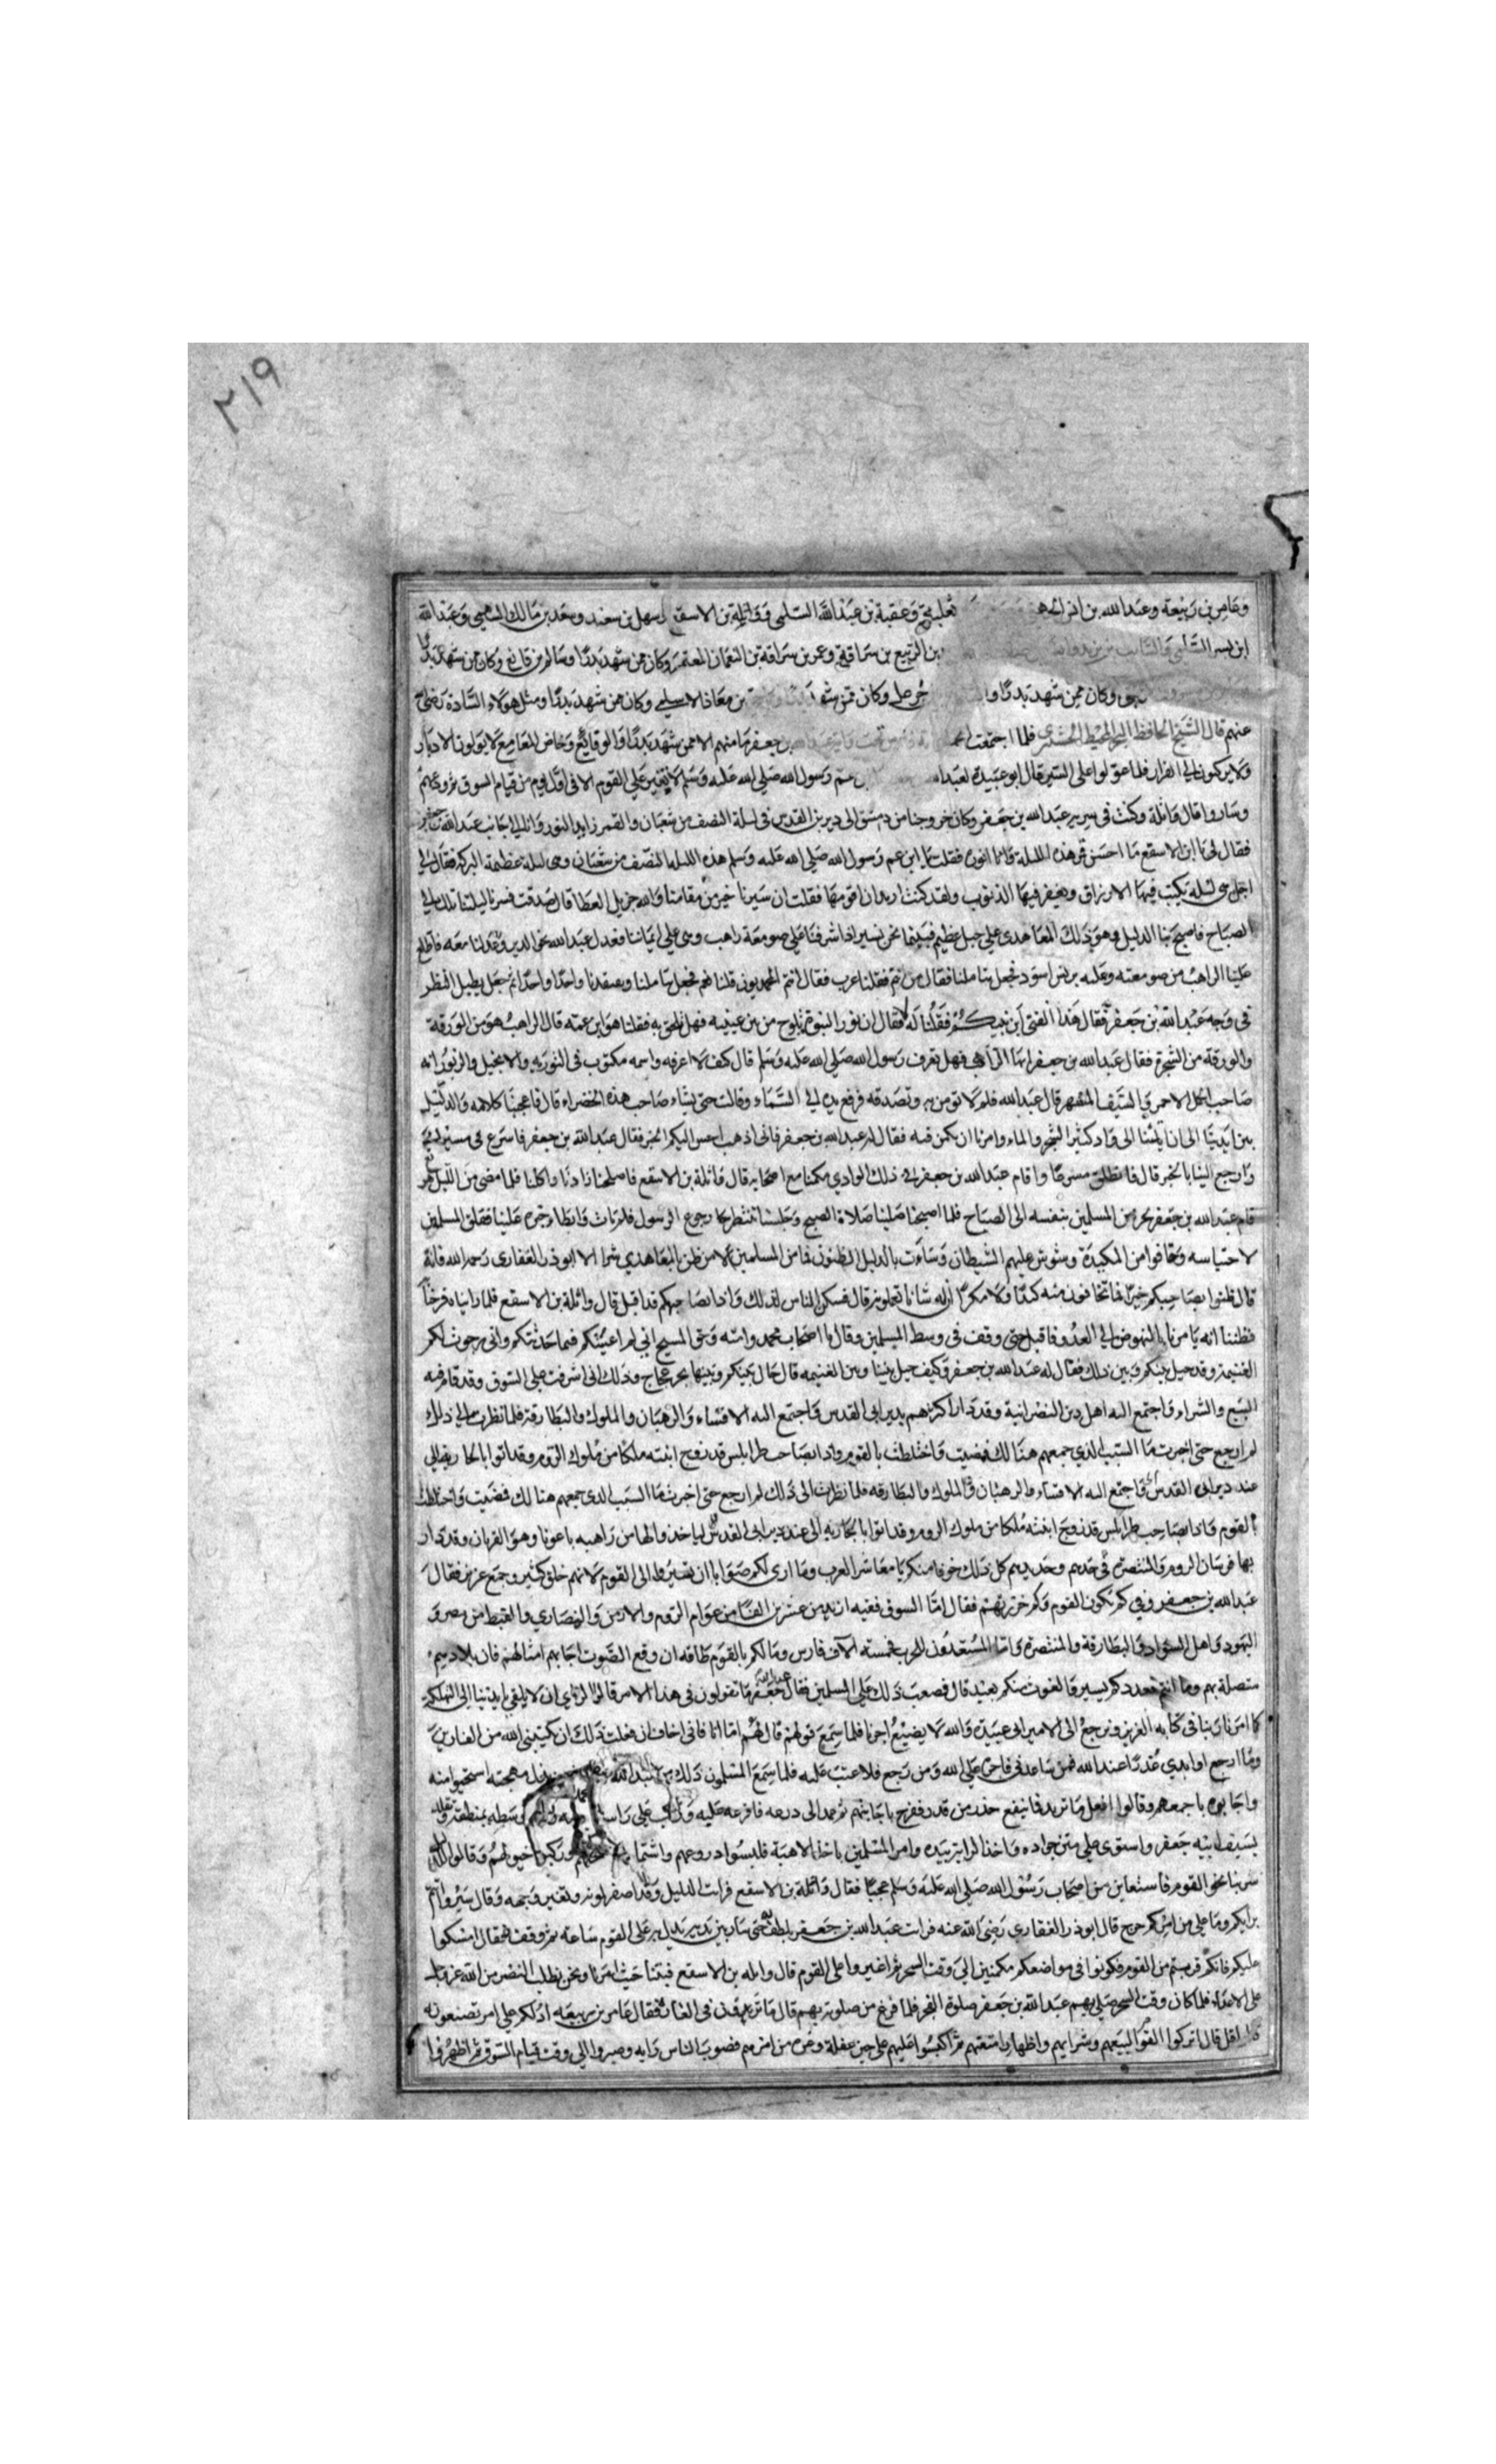 ٢١٩
وعامر بن ربيعة وعبد الله بن انيس الجهنى ثعلبة وعقبة بن عبد الله السلمى وواثلة بن الاسقع وسهل بن سعد وسعد بن مالك السهمى وعبد الله
ابن بسر السلمى والسائب بن يزيد بن الربيع بن سراقة وعمر بن سراقة بن النعمان المعتمر وكان ممن شهد بدرا وسالم بن قانع وكان ممن شهد بدرا
وكان ممن شهد بدرا و وكان ممن شهد بن معاذ الاسلمى وكان ممن شهد بدرا ومثل هولاء السادة رضى الله
عنهم قال الشيخ الحافظ فلما اجتمعت بن جعفر ما منهم الا ممن شهد بدرا والوقايع وخاض المعامع لا يولون الادبار
ولا يركنون الى الفرار فلما عولوا على السير قال ابو عبيدة لعبد الله عم رسول الله صلى الله عليه وسلم لا تغير على القوم الا فى اول يوم من قيام السوق ثم ودعهم
وساروا قال واثلة وكنت فى سرية عبد الله بن جعفر وكان خروجنا من دمشق الى دير بن القدس فى ليلة النصف من شعبان والقمر زايد النور وانا الى جانب عبد الله بن جعفر
فقال لى يا ابن الاسقع ما احسن قمر هذه الليلة وانوره فقلت يا ابن عم رسول الله صلى الله عليه وسلم هذه الليلة النصف من شعبان وهى ليلة عظيمة البركة فقال لى
اجل هى ليلة يكتب فيها الارزاق ويغفر فيها الذنوب ولقد كنت اردت ان اقومها فقلت ان سيرنا خير من مقامنا والله جزيل العطا قال صدقت فسرنا ليلتنا تلك الى
الصباح فاصبح بنا الدليل وهو ذلك المعاهدى على جبل عظيم فبينما نحن نسير اذ اشرفنا على صومعة راهب وهى على ايماننا فعدل عبد الله نحو الدير وعدلنا معه فاطلع
علينا الراهب من صومعته وعليه برنس اسود فجعل يتاملنا فقال من انتم فقلنا عرب فقال انتم المحمديون قلنا نعم فجعل يتاملنا ويفتقدنا واحدا واحدا ثم جعل يطيل النظر
فى وجه عبد الله بن جعفر فقال هذا الفتى ابن نبيكم فقلنا له لا فقال ان نور النبوة يلوح من بين عينيه فهل يلحق به فقلنا هو ابن عمه قال الراهب هو من الورقة
والورقة من الشجرة فقال عبد الله بن جعفر ايها الراهب فهل تعرف رسول الله صلى الله عليه وسلم قال كيف لا اعرفه واسمه مكتوب فى التوريه والانجيل والزبور انه
صاحب الجمل الاحمر والسيف المشهر قال عبد الله فلم لا تومن به وتصدقه فرفع يده الى السماء وقالت حتى يشاء صاحب هذه الخضراء قال فاعجبنا كلامه والدليل
بين ايدينا الى ان اتينا الى واد كثير الشجر والماء وامرنا ان نكمن فيه فقال لعبد الله بن جعفر فانى اذهب اجس اليكم الخبر فقال عبد الله بن جعفر فاسرع فى مسيرك
وارجع الينا بالخبر قال فانطلق مسرعا واقام عبد الله بن جعفر فى ذلك الوادى مكمنا مع اصحابه قال واثلة بن الاسقع فاصلحنا زادنا واكلنا فلما مضى من الليل
قام عبد الله بن جعفر يحرس المسلمين بنفسه الى الصباح فلما اصبحنا صلينا صلاة الصبح وجلسنا ننتظر رجوع الرسول فلم يات وابطاء خبره علينا فقلق المسلمون
لاحتباسه وخافوا من المكيدة وشوش عليهم الشيطان وساءت بالدليل الظنون فما من المسلمين الا من ظن بالمعاهدى شرا الا ابو ذر الغفارى رحمه الله فانه
قال ظنوا بصاحبكم خيرا فما تخافون منه كيدا ولا مكرا ان له شانا تعلمونه قال فسكن الناس لذلك واذا بصاحبهم قد اقبل قال واثلة بن الاسقع فلما رايناه فرحنا
فظننا انه يامرنا بالنهوض الى العدو فاقبل حتى وقف فى وسط المسلمين وقال يا اصحاب محمد وامته وحق المسيح انى لم اغشكم فيما حدثتكم وانى رجوت لكم
الغنيمة وقد حيل بينكم وبين ذلك فقال له عبد الله بن جعفر وكيف حيل بيننا وبين الغنيمه قال حال بينكم وبينها بحر عجاج وذلك انى اشرفت على السوق وقد قام فيه
البيع والشراء واجتمع اليه اهل دين النصرانية وقد دار اكثرهم بدير ابى القدس واجتمع اليه الاقساء والرهبان والملوك والبطارقة فلما نظرت الى ذلك
لم ارجع حتى اخبرت ما السبب الذى جمعهم هنالك فمضيت واختلطت بالقوم واذا بصاحب طرابلس قد زوج ابنته ملكا من ملوك الروم وقد اتوا بالجارية الى
عند دير ابى القدس واجتمع اليه الاقساء والرهبان والملوك والبطارقه فلما نظرت الى ذلك لم ارجع حتى اخبرت ما السبب الذى جمعهم هنالك فمضيت واختلطت
بالقوم واذا بصاحب طرابلس قد زوج ابنته ملكا من ملوك الروم وقد اتوا بالجاريه الى عند دير ابى القدس لياخذوا لها من راهبه باعونا وهو القربان وقد دار
بها فرسان الروم والمتنصرة فى حدهم وحديدهم كل ذلك خوفا منكم يا معاشر العرب وما ارى لكم صوابا ان تسيروا الى القوم لانهم خلق كثير وجمع غزير فقال
عبد الله بن جعفر وفى كم تكون القوم وكم حزرتهم فقال اما السوق ففيه ازيد من عشرين الفا من عوام الروم والارمن والنصارى والقبط من مصر و
اليهود واهل السواد والبطارقة والمتنصرة واما المستعدون للحرب خمسة الاف فارس وما لكم بالقوم طاقه ان وقع الصوت اجابهم امثالهم فان بلادهم
متصلة بهم وما انتم فعددكم يسير والغوث منكم بعيد قال فصعب ذلك على المسلمين فقال عبد الله بن جعفر ما تقولون فى هذا الامر قالوا الراى ان لا يلقى بايدينا الى التهلكة
كما امرنا ربنا فى كتابه العزيز ونرجع الى الامير ابى عبيدة والله لا يضيع اجرنا فلما سمع قولهم قال لهم اما انا فانى اخاف ان فعلت ذلك ان يكتبنى الله من الفارين
وما ارجع او ابدى عذرا عند الله فمن ساعدنى فاجره على الله ومن رجع فلا عتب عليه فلما سمع المسلمون ذلك من عبد الله بن جعفر مهجته استحيوا منه
واجابوه باجمعهم وقالوا افعل ما تريد فما ينفع حذر من قدر ففرح باجابتهم ثم عمد الى درعه فافرغه عليه وركب على راسه وسطه بمنطقة وتقلد
بسيف ابيه جعفر واستوى على متن جواده واخذ الراية بيده وامر المسلمين باخذ الاهبة فلبسوا دروعهم واشتملوا وركبوا خيولهم وقالوا للدليل
سر بنا نحو القوم فاستعاين من اصحاب رسول الله صلى الله عليه وسلم عجبا فقال واثلة بن الاسقع فرايت الدليل وقد اصفر لونه وتغير وجهه وقال سيروا انتم
برايكم وما على من امركم حرج قال ابو ذر الغفارى رضى الله عنه فرايت عبد الله بن جعفر يلطف حتى سار بين يديه يدل به على القوم ساعة ثم وقف فقال امسكوا
عليكم فانكم قربتم من القوم فكونوا فى مواضعكم مكمنين الى وقت السحر ثم اغيروا على القوم قال واثله بن الاسقع فبتنا حيث امرنا ونحن نطلب النصر من الله عز وجل
على الاعداء فلما كان وقت السحر صلى بهم عبد الله بن جعفر صلوة الفجر فلما فرغ من صلوته بهم قال ما ترون فى الغارة فقال عامر بن ربيعه ادلكم على امر تصنعونه
قالوا قل قال اتركوا القوم لبيعهم وشرايهم واظهار امتعتهم ثم اكبسوا عليهم على حين غفلة وغره من امرهم فصوب الناس رايه وصبروا الى وقت قيام السوق ثم اظهروا